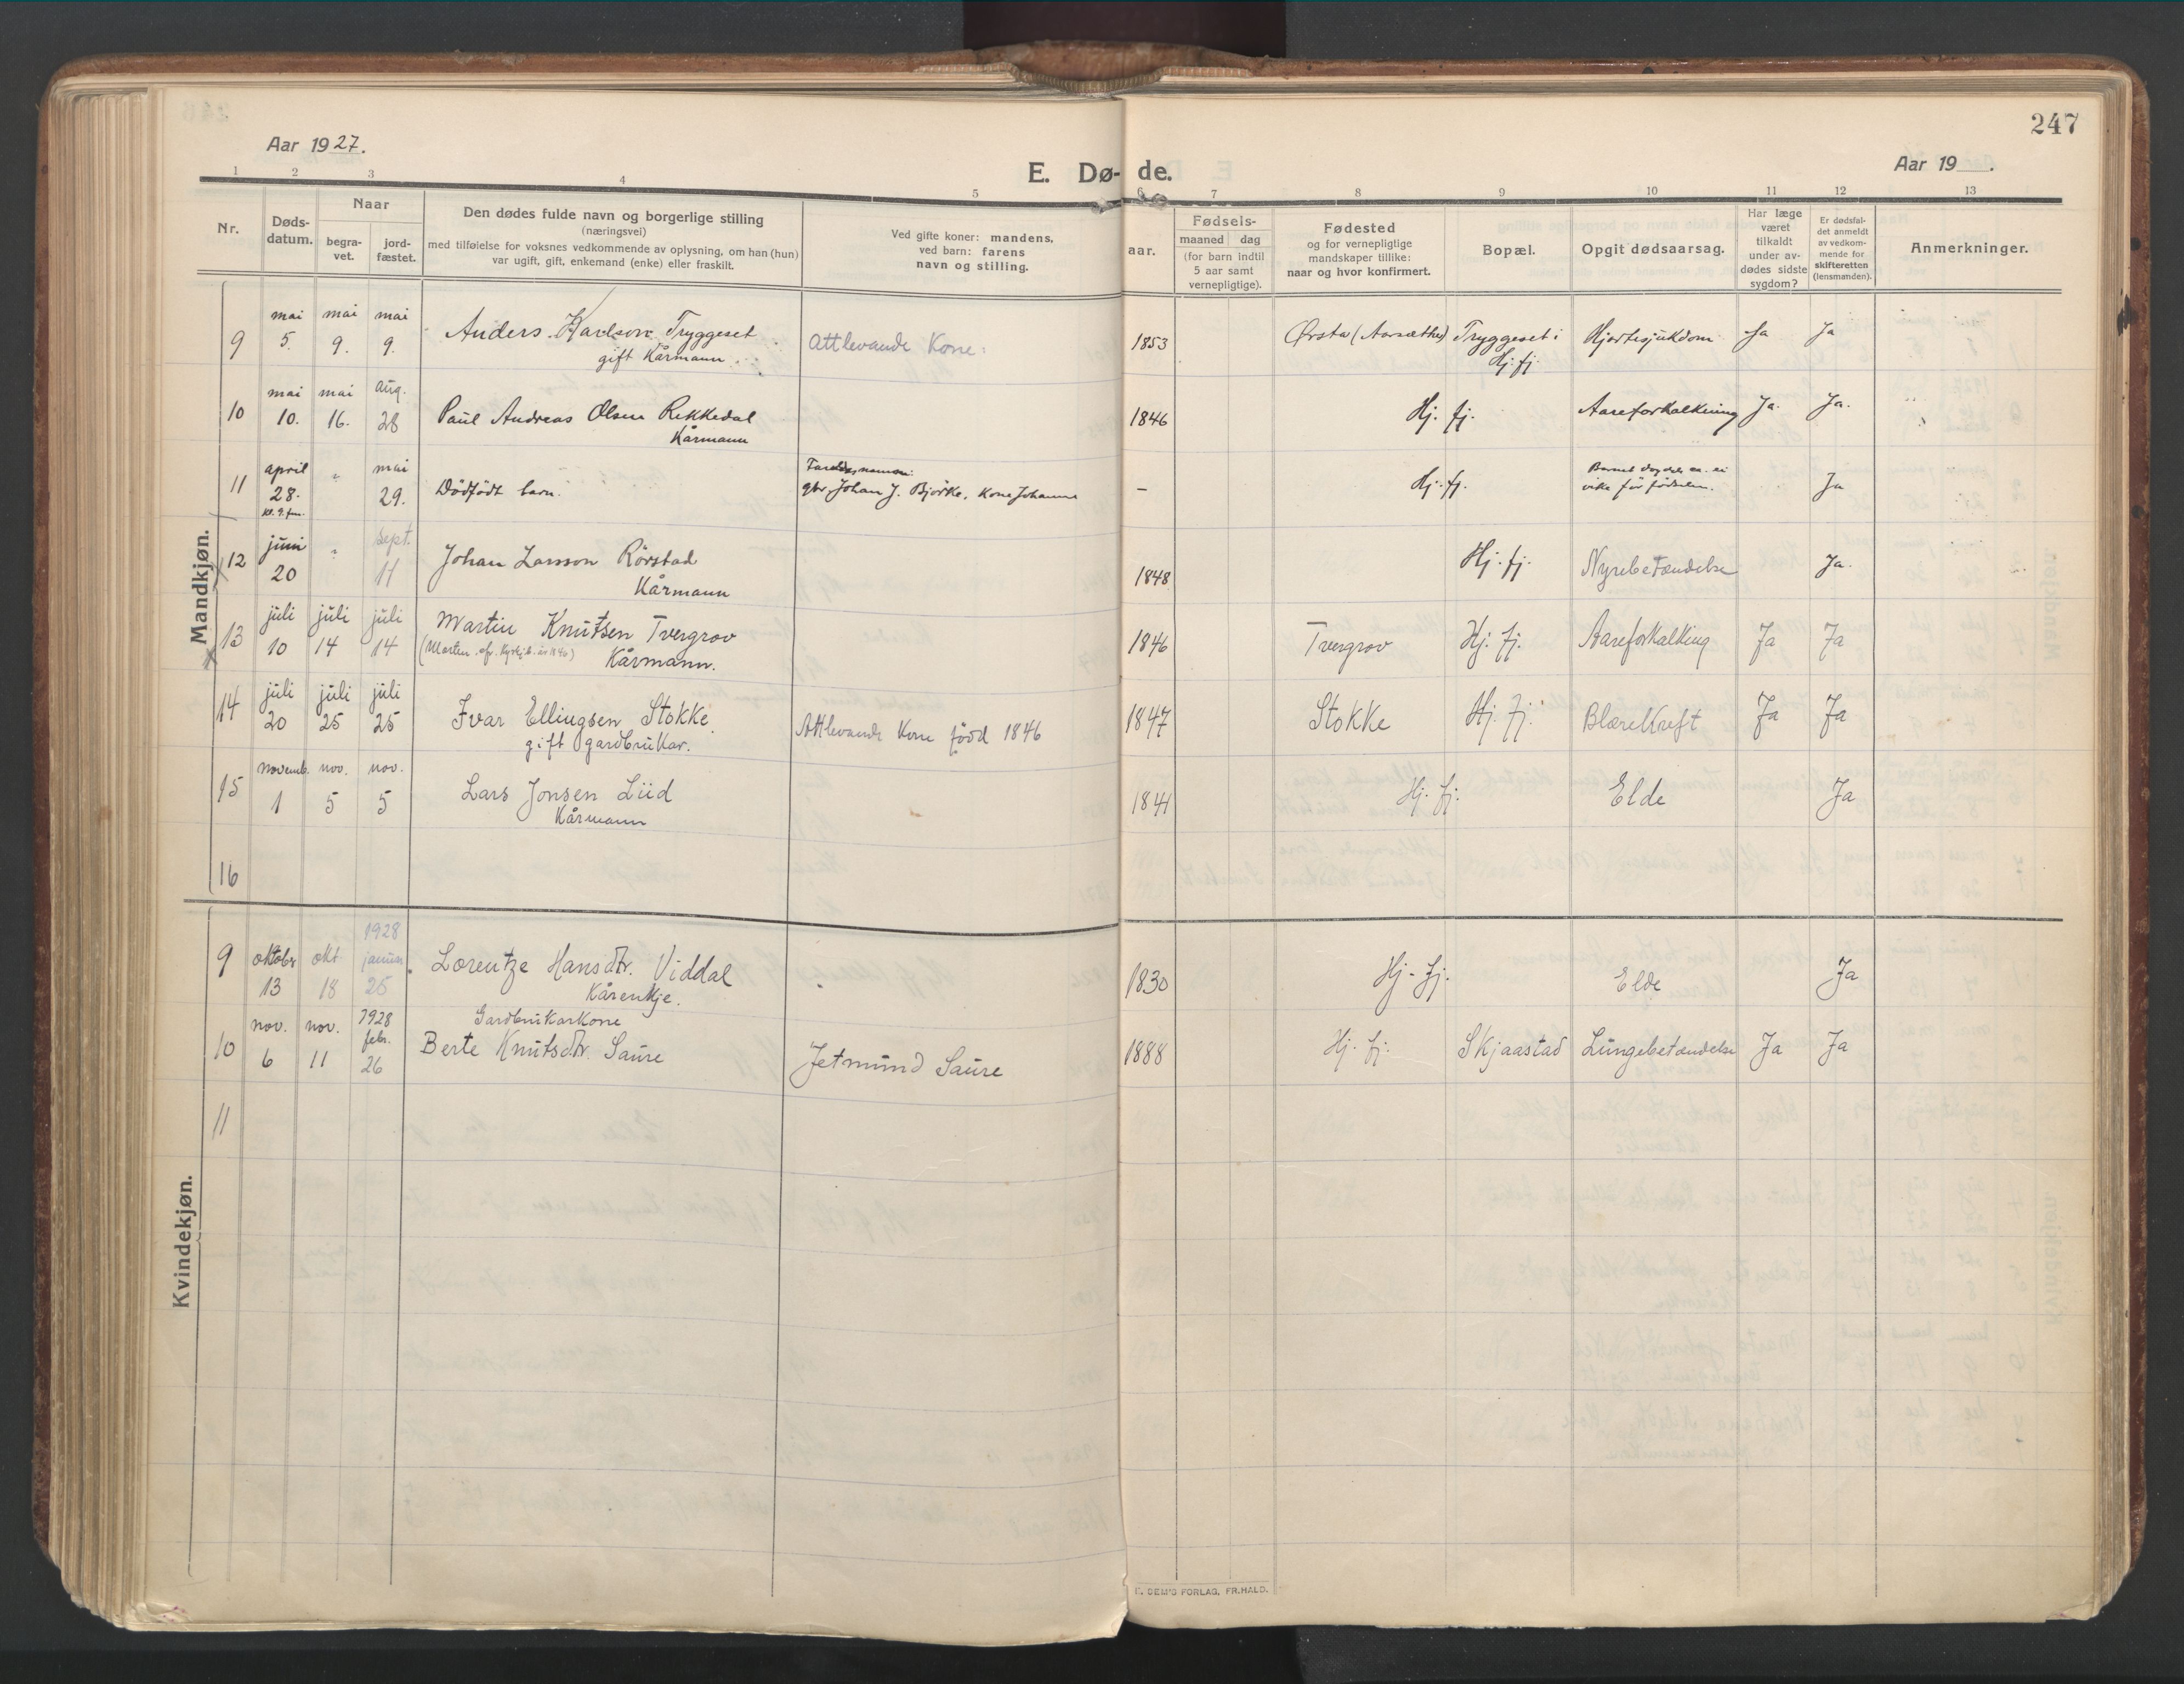 247
Aar 1927.
E. Dø- de.
Aar 19 .
1 2 3 4 5 6 7 8 9 10 11 12 13
Nr.
Døds-
datum.
Naar
begra-
vet.
jord-
fæstet.
Den dødes fulde navn og borgerlige stilling
(næringsvei)
med tilføielse for voksnes vedkommende av oplysning, om han (hun)
var ugift, gift, enkemand (enke) eller fraskilt.
Ved gifte koner: mandens,
ved barn: farens
navn og stilling.
aar.
Fødsels-
maaned dag
(for barn indtil
5 aar samt
vernepligtige).
Fødested
og for vernepligtige
mandskaper tillike:
naar og hvor konfirmert.
Bopæl.
Opgit dødsaarsag.
Har læge
været
tilkaldt
under av-
dødes sidste
sygdom?
Er dødsfal-
det anmeldt
av vedkom-
mende for
skifteretten
(lensmanden).
Anmerkninger.
Mandkjøn.
mai mai mai
9 5. 9. 9. Anders Karlson Tryggeset Attlevande Kone. 1853 Ørsta (Aarsæther) Tryggeset i Hjertesjukdom Ja Ja
gift Kårmann. Hj. fj.
mai mai aug.
10 10. 16. 28 Paul Andreas Olsen Rekkedal 1846 Hj. fj. Aareforkalkning Ja. Ja.
Kårmann
april " mai
11 28. 29. Dödfödt barn. gbr. Johan J. Bjørke, Kone Johanne – Hj. fj. Ja
kl. 9. fm. vike för födselen.
juni " sept.
12 20 11 Johan Larsson Rörstad 1848 Hj. fj. Nyrebetændelse Ja.
Kårmann
juli juli juli
13 10 14 14 Martin Knutsen Tvergrov 1846 Tvergrov Hj. fj. Aareforkalking Ja Ja
Kårmann.
juli juli juli
14 20 25 25 Ivar Ellingsen Stokke Attlevande Kone född 1846 1847 Stokke Hj. fj. Blærekreft Ja Ja
gift gardbrukar.
novemb. nov. nov.
15 1 5 5 Lars Jonsen Liid 1841 Hj. fj. Elde Ja
Kårmann
16
Kvindekjøn.
1928
9 oktober okt januar Lorentze Hansdtr. Viddal 1830 Hj. fj. Elde Ja
13 18 25 Kårenkje.
nov. nov. 1928 Gardbrukarkone
febr.
10 6 11 26 Berte Knutsdtr. Saure Jetmund Saure 1888 Hj. fj. Skjaastad Lungebetændelse Ja Ja
11
E. DEM'S FORLAG, FR.HALD.